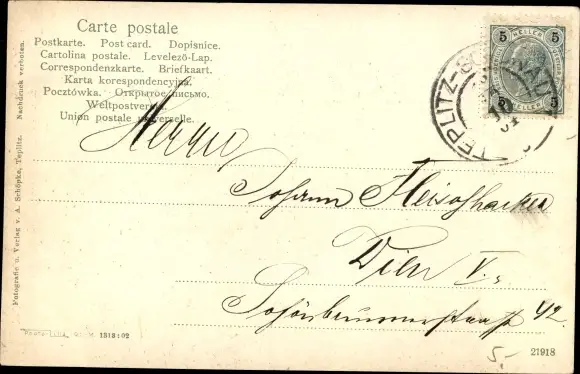 Carte postale
Postkarte. Post card. Dopisnice.
Cartolina postale. Levelező-Lap.
Correspondenzkarte. Briefkaart.
Karta korespondencyjna.
Pocztówka. Открытое письмо.
Weltpostverein.
Union postale universelle.
5 HELLER 5
5 HELLER 5
TEPLITZ-SCHÖNAU
Herrn
Johann Fleischhacker
Wien V.
Schönbrunnerstraße 42.
Fotografie u. Verlag v. A. Schöpke, Teplitz. Nachdruck verboten.
1313:02
5,-
21918